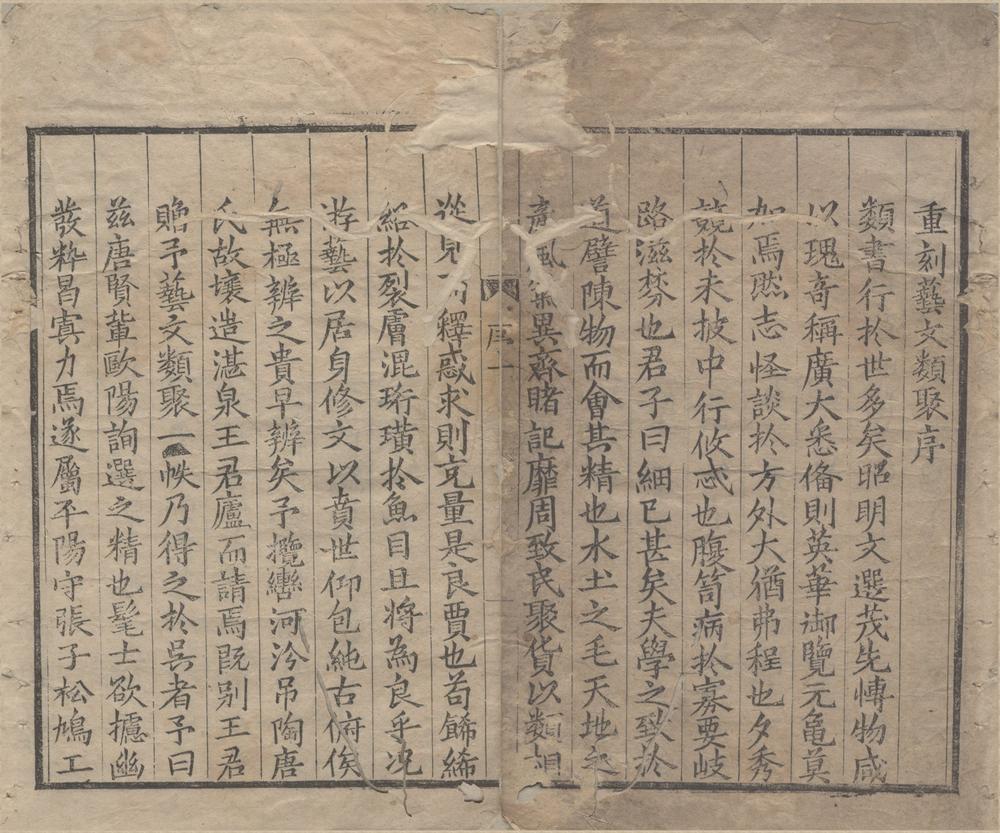 重刻藝文類聚序
類書行於世多矣昭明文選茂先愽物咸
以瑰竒稱廣大悉偹則英華御覽元龜莫
加焉然志怪談於方外大猶弗程也夕秀
競於未披中行攸惑也腹笥病於寡要岐
路滋棼也君子曰細已甚矣夫學之致於
道譬陳物而會其精也水土之毛天地之
風氣異齋睹記靡周致民聚貨以類相
從見釋惑求則充量是良賈也苟餙絺
綌於裂膚混珩璜於魚目且將為良乎况
游藝以居身修文以賁世仰包純古俯俟
無極辨之貴早辨矣予攬轡河汾吊陶唐
氏故壤造湛泉王君廬而請焉既别王君
贈予藝文類聚一帙乃得之於吳者予曰
兹唐賢輩歐陽詢選之精也髦士欲攄幽
發粋昌寘力焉遂屬平陽守張子松鳩工
序 一